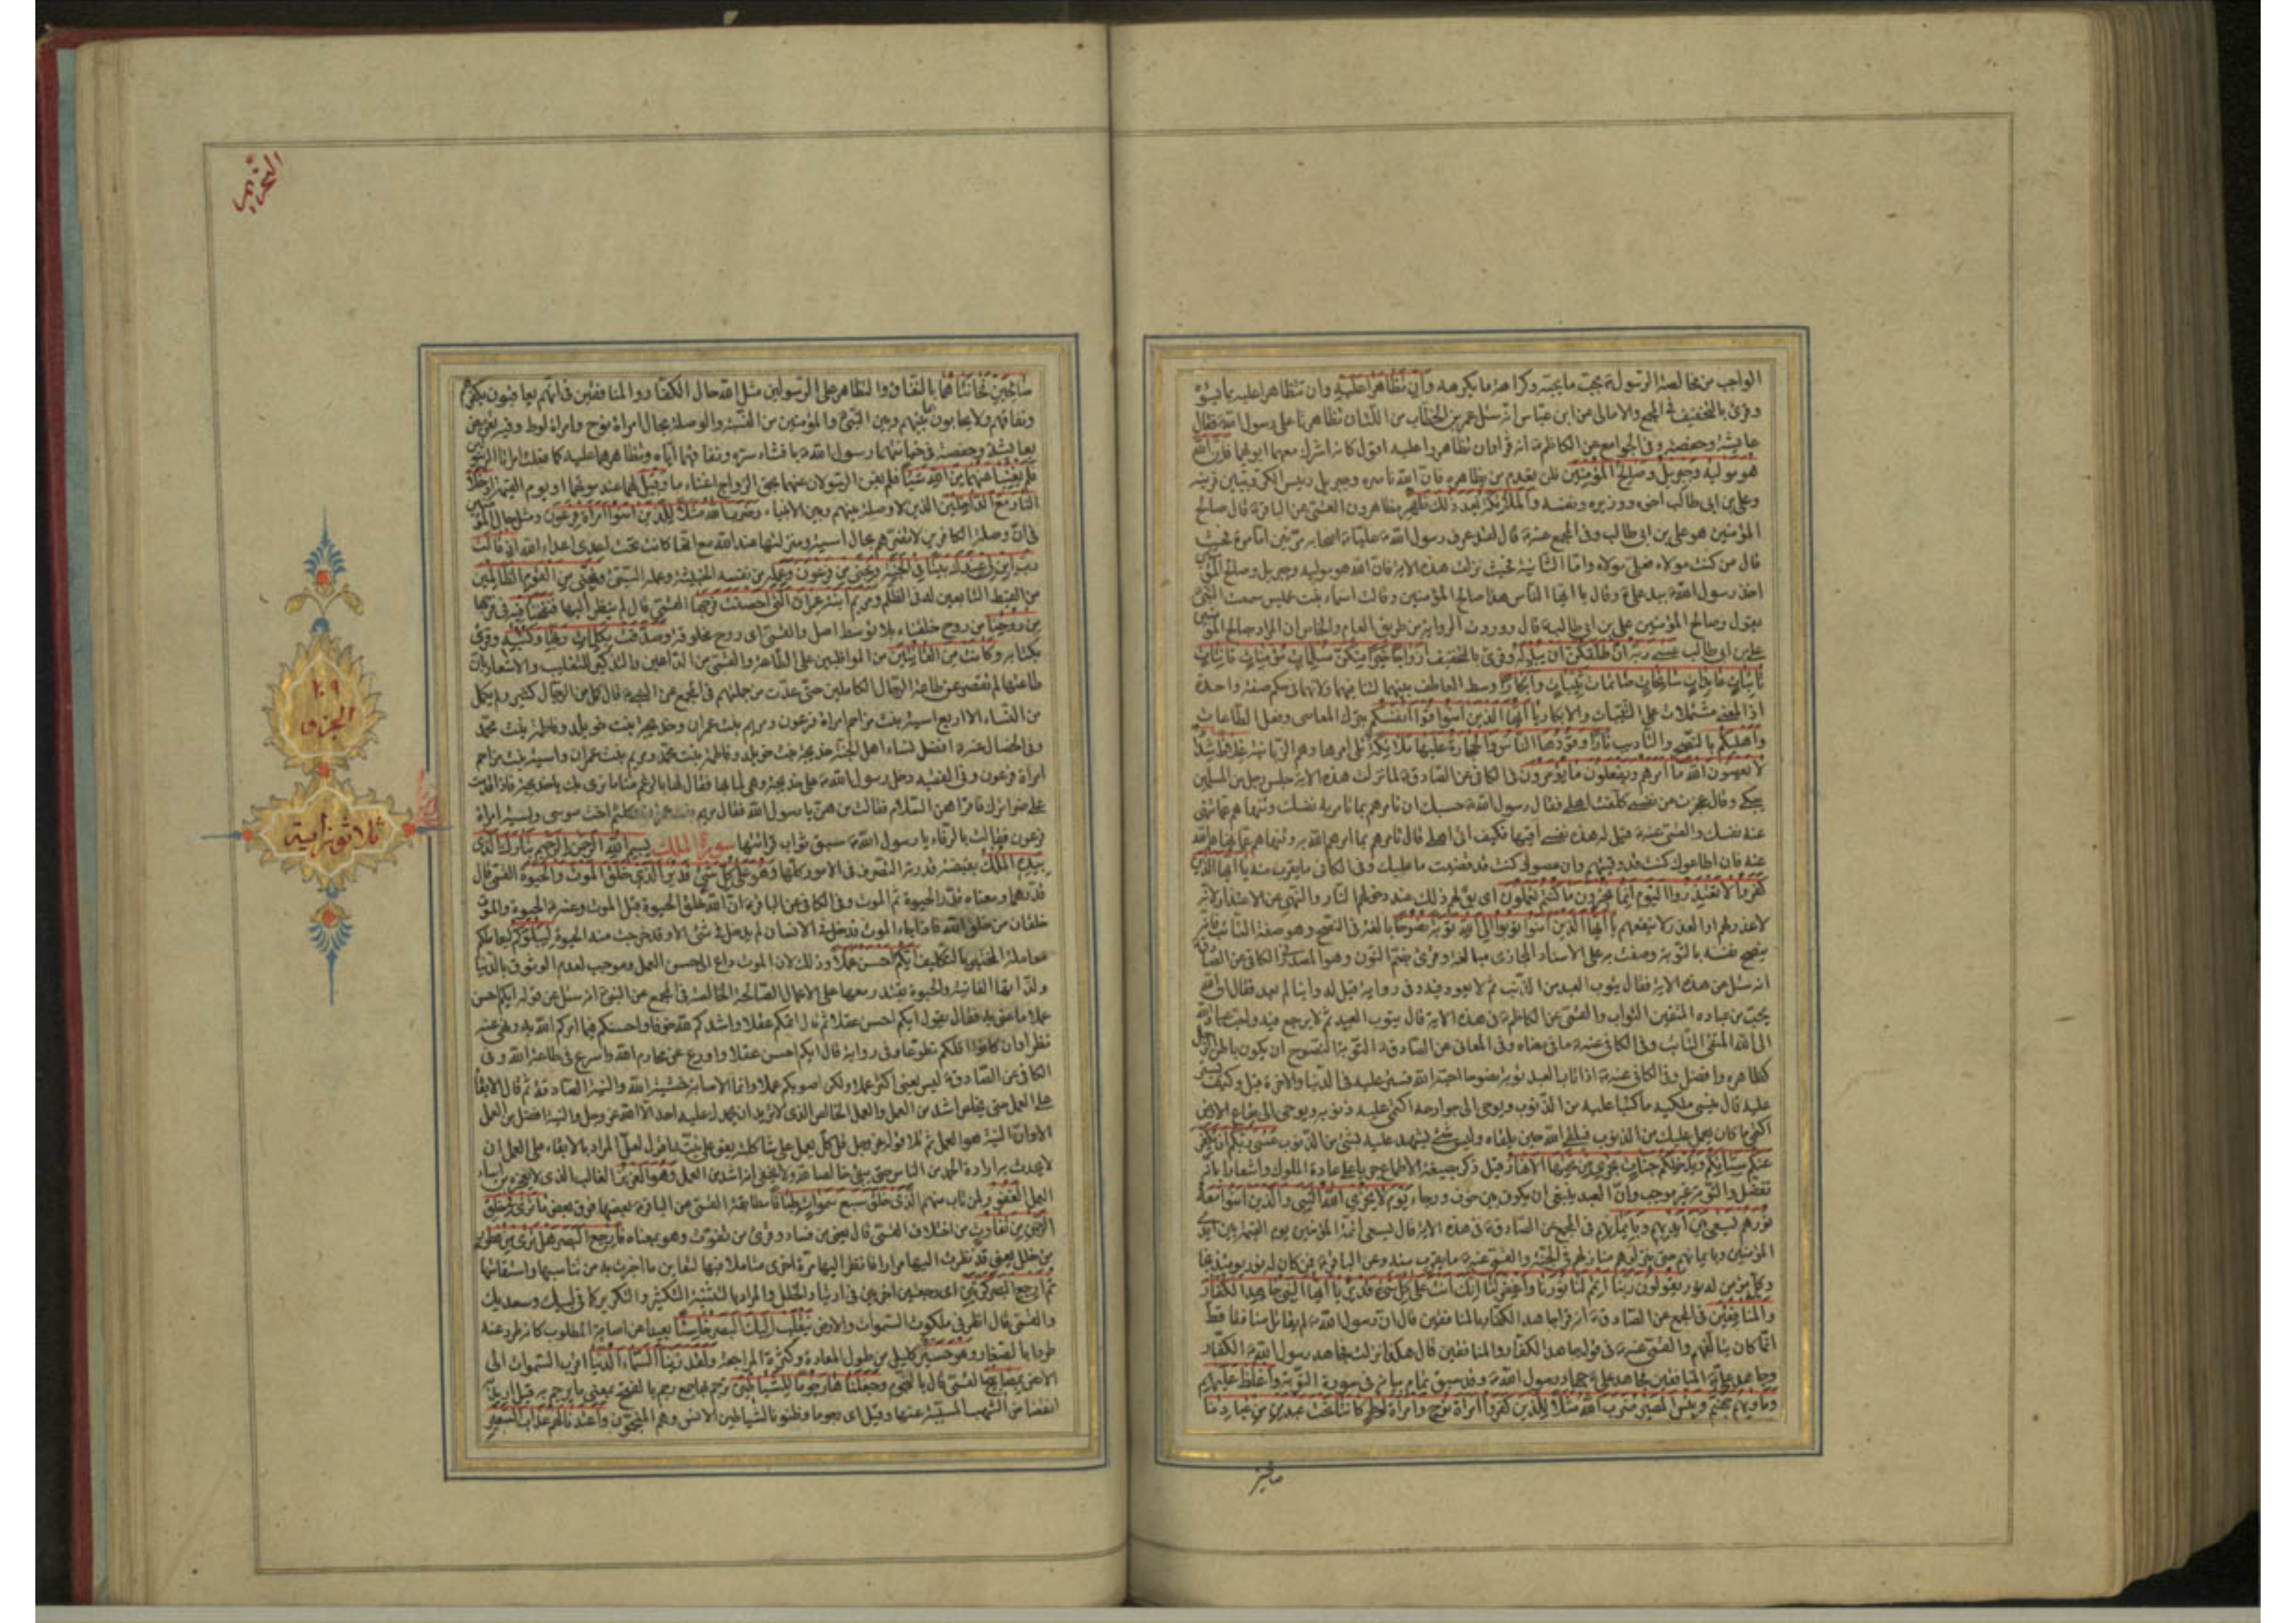 الواجب من مخالصة الرسول بحب ما يحبه وكراهة ما يكرهه وان تظاهرا عليه وان تتظاهرا عليه بما يسوؤه
وقرئ بالتخفيف في المجمع والامالي عن ابن عباس انه سئل عمر بن الخطاب من اللتان تظاهرتا على رسول الله فقال
عايشة وحفصة وفي الجوامع عن الكاظم انه قرأ وان تظاهروا عليه اقول كانه اشرك معهما ابويهما فان الله
هو موليه وجبريل وصالح المؤمنين فلن يعدم من يظاهره فان الله ناصره وجبريل رئيس الكروبيين قرينه
وعلي بن ابي طالب اخوه ووزيره ونفسه والملائكة بعد ذلك ظهير مظاهرون القمي عن الباقر قال صالح
المؤمنين هو علي بن ابي طالب وفي المجمع عنه قال لقد عرف رسول الله عليا اصحابه مرتين اما مرة فحيث
قال من كنت مولاه فعلي مولاه واما الثانية فحيث نزلت هذه الاية فان الله هو موليه وجبريل وصالح المؤمنين
اخذ رسول الله بيد علي وقال يا ايها الناس هذا صالح المؤمنين وقالت اسماء بنت عميس سمعت النبي
يقول وصالح المؤمنين علي بن ابي طالب قال ووردت الرواية من طريق العام والخاص ان المراد بصالح المؤمنين
علي بن ابي طالب عسى ربه ان طلقكن ان يبدله وقرئ بالتخفيف ازواجا خيرا منكن مسلمات مؤمنات قانتات
تائبات عابدات سائحات صائمات ثيبات وابكارا وسط العاطف بينهما لتنافيهما ولانهما في حكم صفة واحدة
اذ المعنى مشتملات على الثيبات والابكار يا ايها الذين امنوا قوا انفسكم بترك المعاصي وفعل الطاعات
واهليكم بالنصح والتأديب نارا وقودها الناس والحجارة عليها ملائكة تلي امرها وهم الزبانية غلاظ شداد
لا يعصون الله ما امرهم ويفعلون ما يؤمرون في الكافي عن الصادق لما نزلت هذه الاية جلس رجل من المسلمين
يبكي وقال عجزت عن نفسي كلفت اهلي فقال رسول الله حسبك ان تأمرهم بما تأمر به نفسك وتنهاهم عما تنهى
عنه نفسك والقمي عنه قيل له هذه نفسي اقيها فكيف اقي اهلي قال تأمرهم بما امرهم الله به وتنهاهم عما نهاهم الله
عنه فان اطاعوك كنت قد وقيتهم وان عصوك كنت قد قضيت ما عليك وفي الكافي ما يقرب منه يا ايها الذين
كفروا لا تعتذروا اليوم انما تجزون ما كنتم تعملون اي يقال لهم ذلك عند دخولهم النار والنهي عن الاعتذار لانه
لا عذر لهم او العذر لا ينفعهم يا ايها الذين امنوا توبوا الى الله توبة نصوحا بالغة في النصح وهو صفة التائب فانه
ينصح نفسه بالتوبة وصفت به على الاسناد المجازي مبالغة وقرئ بضم النون وهو المصدر الكافي عن الصادق
انه سئل عن هذه الاية فقال يتوب العبد من الذنب ثم لا يعود فيه وفي رواية قيل له واينا لم يعد فقال ان الله
يحب من عباده المفتن التواب والقمي عن الكاظم في هذه الاية قال يتوب العبد ثم لا يرجع فيه واحب عباد الله
الى الله المتقي التائب وفي الكافي عنه ما في معناه وفي المعاني عن الصادق التوبة النصوح ان يكون باطن الرجل
كظاهره وافضل وفي الكافي عنه اذا تاب العبد توبة نصوحا احبه الله فستر عليه في الدنيا والاخرة قيل وكيف يستر
عليه قال ينسي ملكيه ما كتبا عليه من الذنوب ويوحي الى جوارحه اكتمي عليه ذنوبه ويوحي الى بقاع الارض
اكتمي ما كان يعمل عليك من الذنوب فيلقى الله حين يلقاه وليس شيء يشهد عليه بشيء من الذنوب عسى ربكم ان يكفر
عنكم سيئاتكم ويدخلكم جنات تجري من تحتها الانهار قيل ذكر بصيغة الاطماع جريا على عادة الملوك واشعارا بانه
تفضل والتوبة غير موجب وان العبد ينبغي ان يكون بين خوف ورجاء يوم لا يخزي الله النبي والذين امنوا معه
نورهم يسعى بين ايديهم وبايمانهم في المجمع عن الصادق في هذه الاية قال يسعى ائمة المؤمنين يوم القيمة بين ايدي
المؤمنين وبايمانهم حتى ينزلوهم منازلهم في الجنة والقمي عنه ما يقرب منه وعن الباقر فمن كان له نور يومئذ نجا
وكل مؤمن له نور يقولون ربنا اتمم لنا نورنا واغفر لنا انك انت على كل شئ قدير يا ايها النبي جاهد الكفار
والمنافقين في المجمع عن الصادق انه قرأ جاهد الكفار بالمنافقين قال ان رسول الله لم يقاتل منافقا قط
انما كان يتألفهم والقمي عنه في قوله جاهد الكفار والمنافقين قال هكذا نزلت فجاهد رسول الله الكفار
وجاهد علي المنافقين فجاهد علي جهاد رسول الله وقد سبق تمام بيانه في سورة التوبة واغلظ عليهم
وماويهم جهنم وبئس المصير ضرب الله مثلا للذين كفروا امرأة نوح وامرأة لوط كانتا تحت عبدين من عبادنا
صالحين
التحريم
صالحين فخانتاهما بالنفاق والتظاهر على الرسولين مثل الله حال الكفار والمنافقين في انهم يعاقبون بكفرهم
ونفاقهم ولا يحابون بما بينهم وبين النبي والمؤمنين من النسبة والوصلة بحال امرأة نوح وامرأة لوط وفيه تعريض
بعايشة وحفصة في خيانتهما رسول الله بافشاء سره ونفاقهما اياه وتظاهرهما عليه كما فعلت امرأتا الرسولين
فلم يغنيا عنهما من الله شيئا فلم يغن الرسولان عنهما بحق الزواج اغناء ما وقيل لهما عند موتهما او يوم القيمة ادخلا
النار مع الداخلين الذين لا وصلة بينهم وبين الانبياء وضرب الله مثلا للذين امنوا امرأة فرعون ومثل حال المؤمنين
في ان وصلة الكافرين لا تضرهم بحال اسية ومنزلتها عند الله مع انها كانت تحت اعدى اعداء الله اذ قالت
رب ابن لي عندك بيتا في الجنة ونجني من فرعون وعمله من نفسه الخبيثة وعمله السيئ ونجني من القوم الظالمين
من القبط التابعين له في الظلم ومريم ابنة عمران التي احصنت فرجها القمي قال لم ينظر اليها فنفخنا فيه في فرجها
من روحنا من روح خلقناه بلا توسط اصل والقمي اي روح مخلوقة وصدقت بكلمات ربها وكتبه وقرئ
بكتابه وكانت من القانتين من المواظبين على الطاعة والقمي من الداعين والتذكير للتغليب والاشعار بان
طاعتها لم تقصر عن طاعة الرجال الكاملين حتى عدت من جملتهم في المجمع عن النبي قال كمل من الرجال كثير ولم يكمل
من النساء الا اربع اسية بنت مزاحم امرأة فرعون ومريم بنت عمران وخديجة بنت خويلد وفاطمة بنت محمد
وفي الخصال عنه افضل نساء اهل الجنة خديجة بنت خويلد وفاطمة بنت محمد ومريم بنت عمران واسية بنت مزاحم
امرأة فرعون وفي الفقيه دخل رسول الله على خديجة وهي لما بها فقال لها بالرغم منا ما نرى بك يا خديجة فاذا قدمت
على ضرائرك فاقرئهن السلام فقالت من هن يا رسول الله فقال مريم بنت عمران وكلثم اخت موسى واسية امرأة
فرعون فقالت بالرفاء يا رسول الله سبق ثواب قرائتها سورة الملك بسم الله الرحمن الرحيم تبارك الذي
بيده الملك بقبضة قدرته التصرف في الامور كلها وهو على كل شئ قدير الذي خلق الموت والحيوة القمي قال
قدرهما ومعناه قدر الحيوة ثم الموت وفي الكافي عن الباقر ان الله خلق الحيوة قبل الموت وعنه الحيوة والموت
خلقان من خلق الله فاذا جاء الموت فدخل في الانسان لم يدخل في شئ الا وقد خرجت منه الحيوة ليبلوكم ليعاملكم
معاملة المختبر بالتكليف ايكم احسن عملا وذلك لان الموت داع الى حسن العمل وموجب لعدم الوثوق بالدنيا
ولذاتها الفانية والحيوة يقتدر معها على الاعمال الصالحة الخالصة في المجمع عن النبي انه سئل عن قوله ايكم احسن
عملا ما عنى به فقال يقول ايكم احسن عقلا ثم قال اتمكم عقلا واشدكم لله خوفا واحسنكم فيما امركم الله به ونهى عنه
نظرا وان كانوا اقلكم تطوعا وفي رواية قال ايكم احسن عقلا واورع عن محارم الله واسرع في طاعة الله وفي
الكافي عن الصادق ليس يعني اكثر عملا ولكن اصوبكم عملا وانما الاصابة خشية الله والنية الصادقة ثم قال الابقاء
على العمل حتى يخلص اشد من العمل والعمل الخالص الذي لا تريد ان يحمدك عليه احد الا الله عز وجل والنية افضل من العمل
الا وان النية هو العمل ثم تلا قوله عز وجل قل كل يعمل على شاكلته يعني على نيته اقول لعل المراد بالابقاء على العمل ان
لا يحدث به ارادة الحمد من الناس حتى يبقى خالصا له ولا يخفى انه اشد من العمل وهو العزيز الغالب الذي لا يعجزه من اساء
العمل الغفور لمن تاب منهم الذي خلق سبع سموات طباقا مطابقة القمي عن الباقر بعضها فوق بعض ما ترى في خلق
الرحمن من تفاوت من اختلاف القمي قال يعني من فساد وقرئ من تفوت وهو بمعناه فارجع البصر هل ترى من فطور
من خلل يعني قد نظرت اليها مرارا فانظر اليها مرة اخرى متأملا فيها لتعاين ما اخبرت به من تناسبها واستقامتها
ثم ارجع البصر كرتين اي رجعتين اخريين في ارتياد الخلل والمراد بالتثنية التكثير والتكرير كما في لبيك وسعديك
والقمي قال انظر في ملكوت السموات والارض ينقلب اليك البصر خاسئا بعيدا عن اصابة المطلوب كانه طرد عنه
طردا بالصغار وهو حسير كليل من طول المعاودة وكثرة المراجعة ولقد زينا السماء الدنيا اقرب السموات الى
الارض بمصابيح القمي قال بالنجوم وجعلناها رجوما للشياطين ترجم بها جمع رجم بالفتح بمعنى ما يرجم به قيل اريد
انقضاض الشهب المسببة عنها وقيل اي رجوما وظنونا لشياطين الانس وهم المنجمون واعتدنا لهم عذاب السعير
الملك
ثلاثون اية